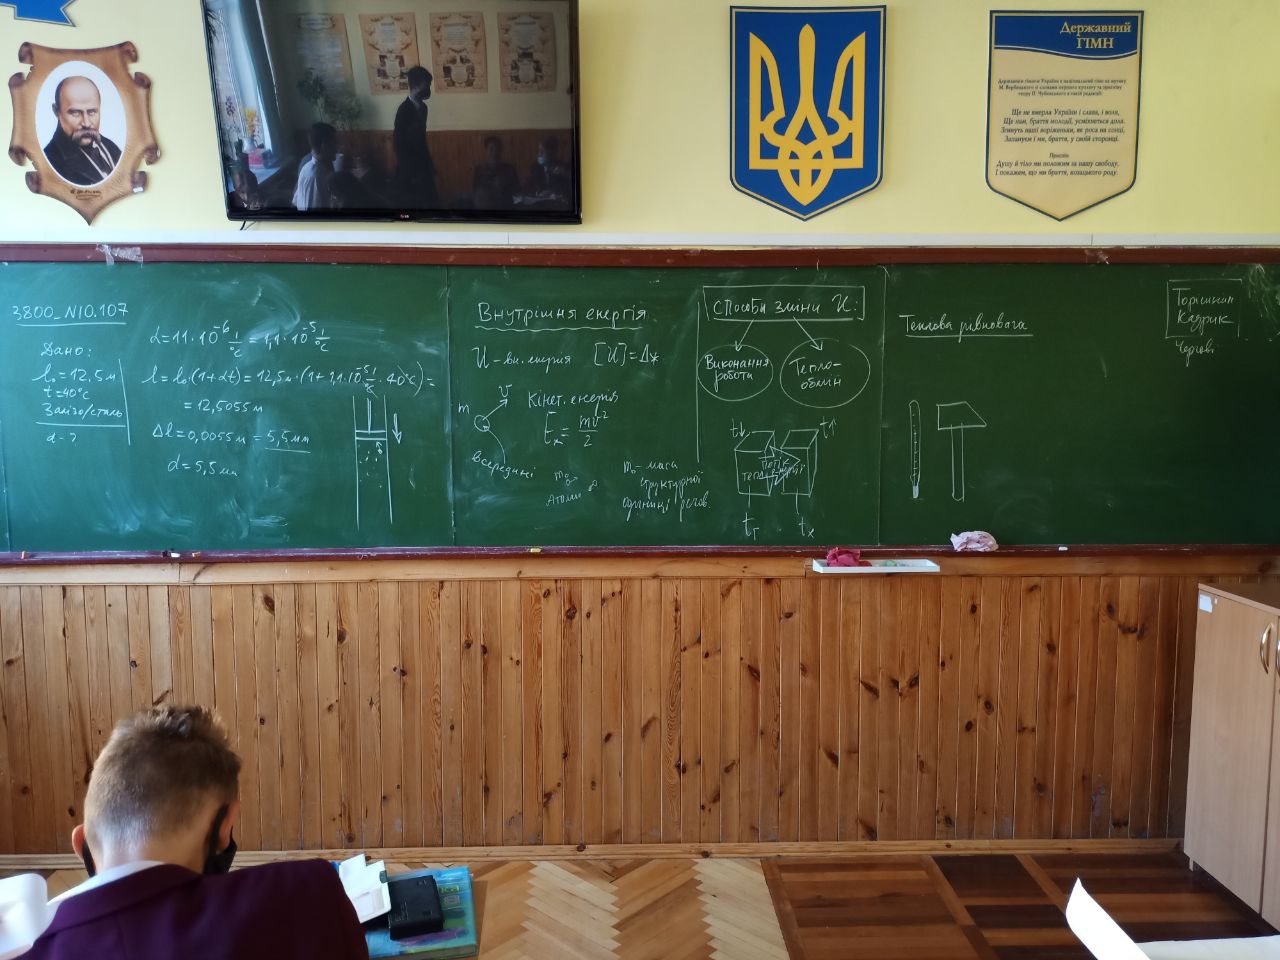 Державний
ГІМН
Державним гімном України є національний гімн на музику
М. Вербицького зі словами першого куплету та приспіву
твору П. Чубинського в такій редакції:
Ще не вмерла України і слава, і воля,
Ще нам, браття молодії, усміхнеться доля.
Згинуть наші воріженьки, як роса на сонці,
Запануєм і ми, браття, у своїй сторонці.
Приспів
Душу й тіло ми положим за нашу свободу,
І покажем, що ми браття, козацького роду.
3800_N10.107
Дано:
l₀=12,5м
t=40°C
Залізо/сталь
d-?
α=11·10⁻⁶ 1/°C = 1,1·10⁻⁵ 1/°C
l=l₀·(1+αt)=12,5м·(1+1,1·10⁻⁵ 1/°C·40°C)=
=12,5055м
Δl=0,0055м=5,5мм
d=5,5мм
Внутрішня енергія
U-вн. енергія [U]=Дж
m
v
Кінет. енергія
Eₖ=mv²/2
всередині
m₀
Атоми
m₀-маса
структурної
одиниці речов.
Способи зміни U:
Виконання
роботи
Тепло-
обмін
t↓
t↑
tг
tх
Теплова рівновага
Торішний
Кадрик
Чергові